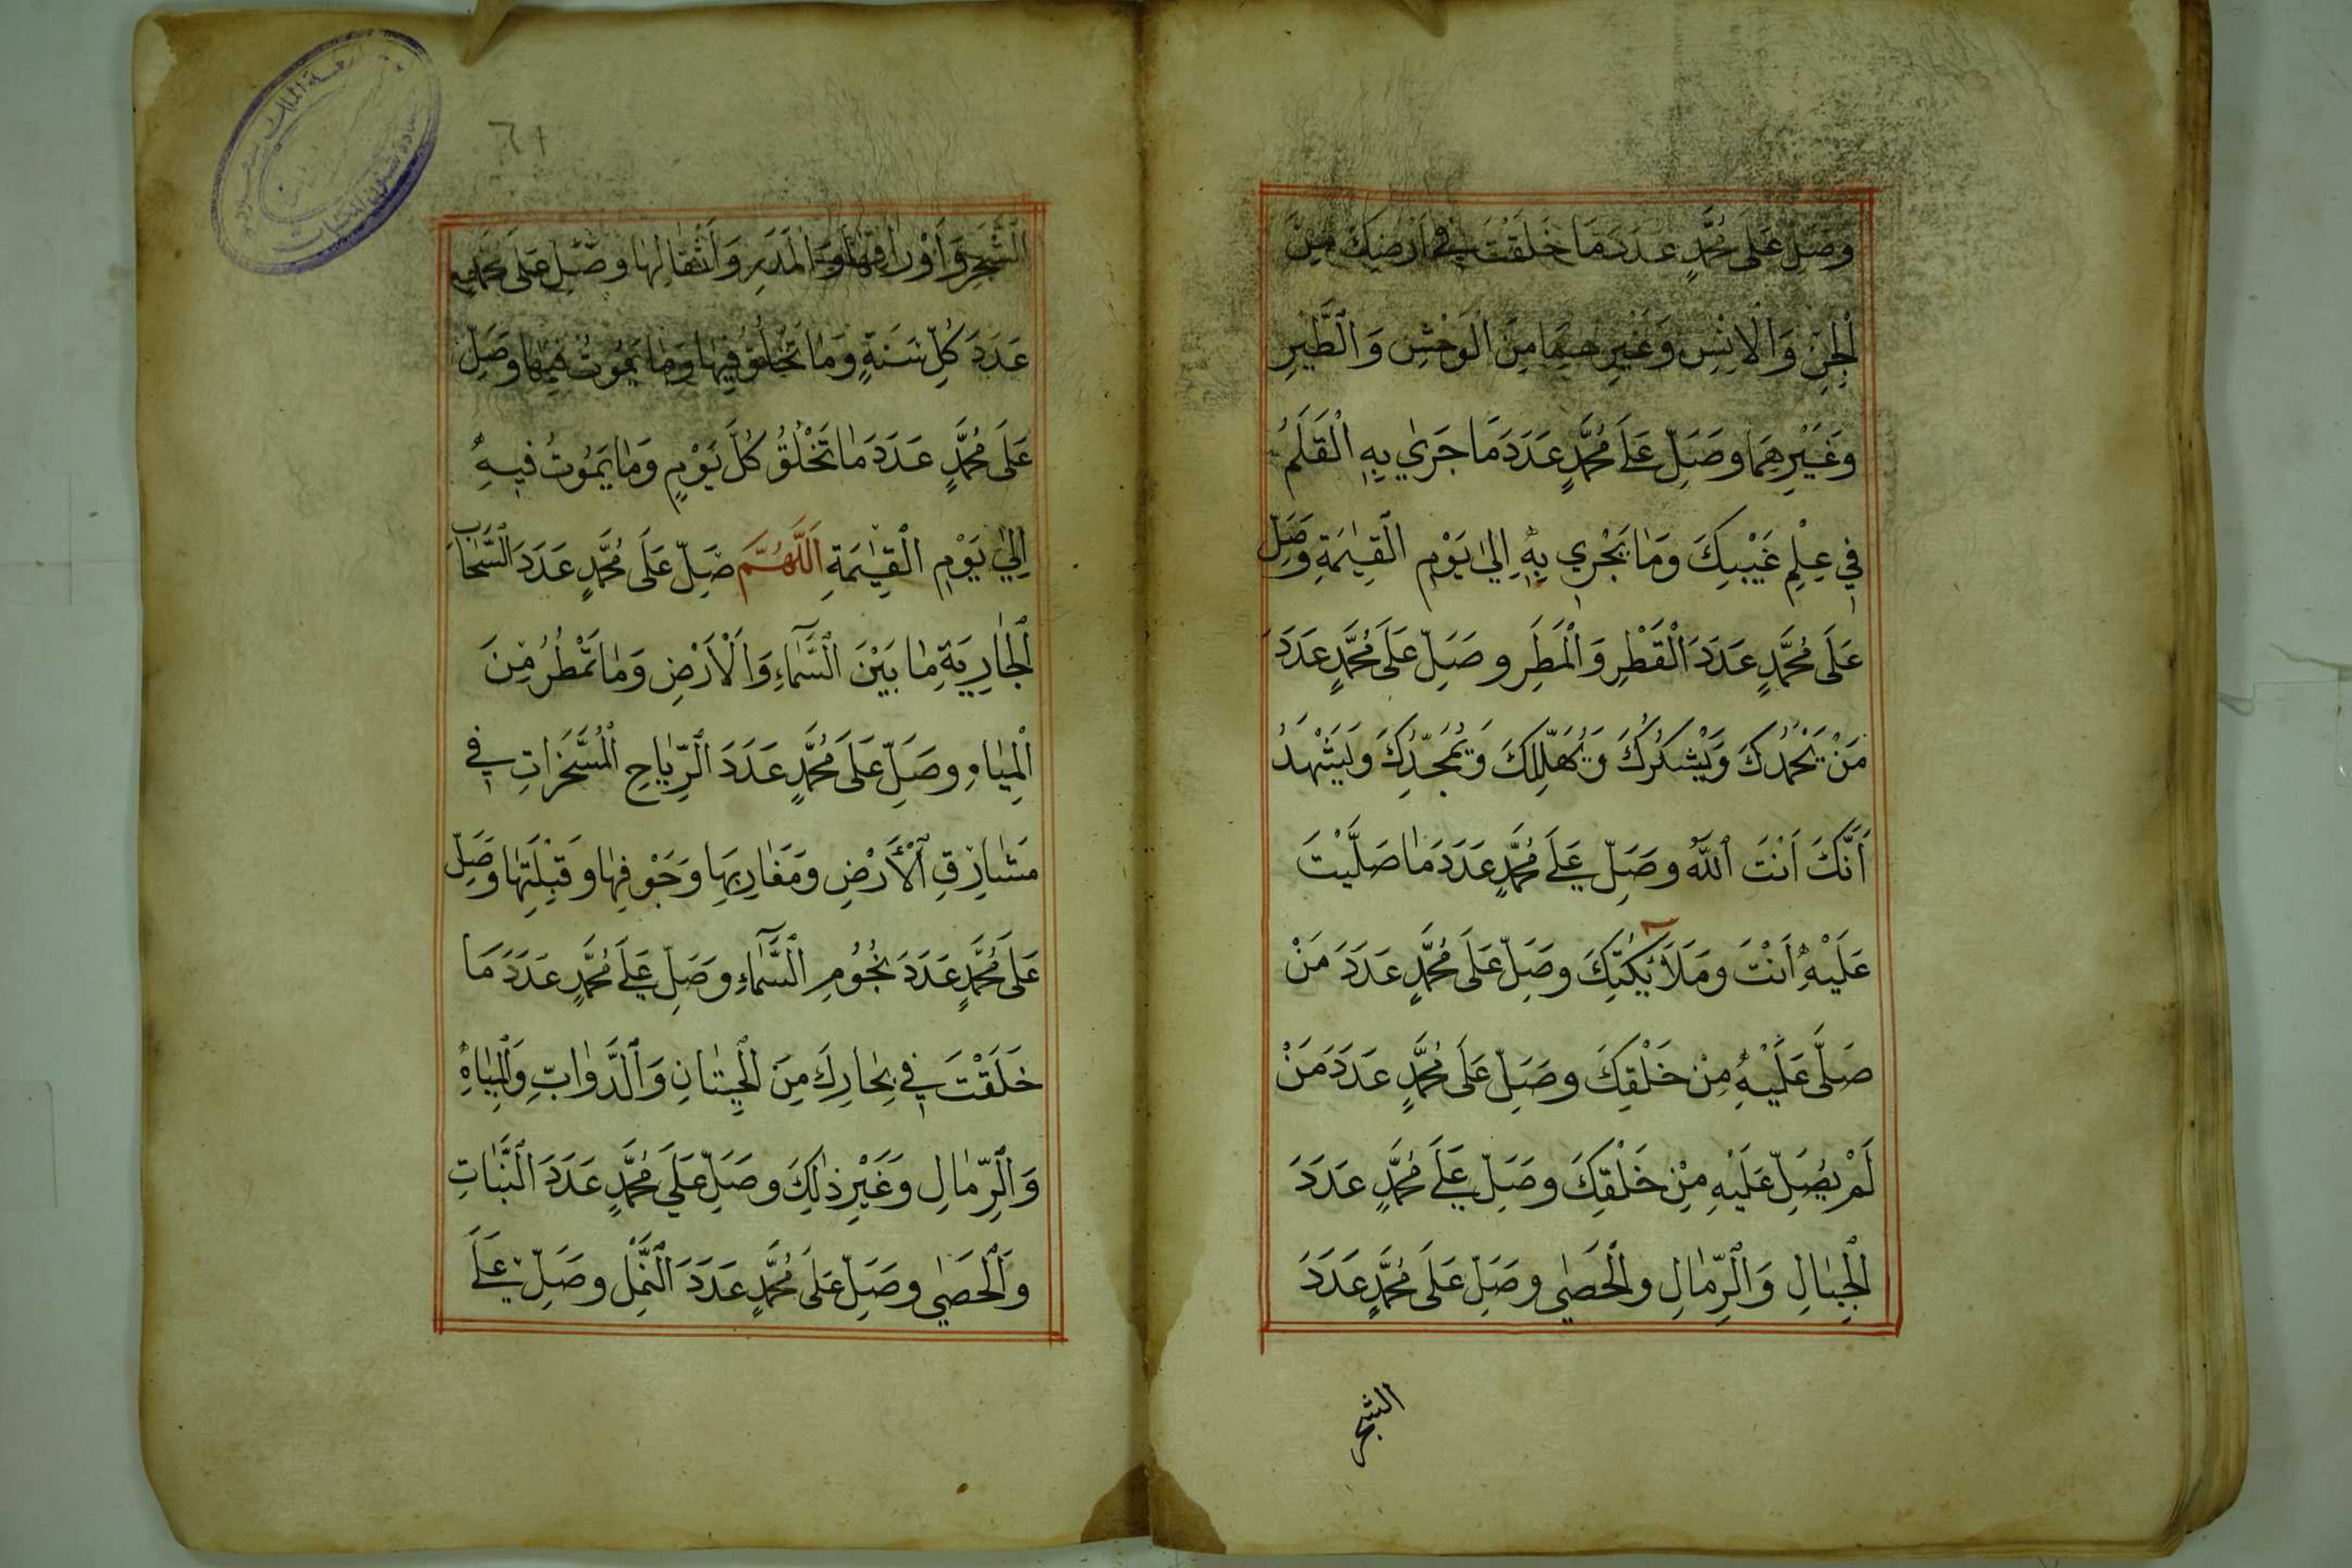 وَصَلِّ عَلَى مُحَمَّدٍ عَدَدَ مَا خَلَقْتَ فِي اَرْضِكَ مِنَ
الْجِنِّ وَالْاِنْسِ وَغَيْرِهِمَا مِنَ الْوَحْشِ وَالطَّيْرِ
وَغَيْرِهِمَا وَصَلِّ عَلَى مُحَمَّدٍ عَدَدَ مَا جَرٰي بِهِ الْقَلَمُ
فِي عِلْمِ غَيْبِكَ وَمٰا يَجْرِي بِهٖ اِلٰي يَوْمِ الْقِيٰمَةِ وَصَلِّ
عَلَى مُحَمَّدٍ عَدَدَ الْقَطْرِ وَالْمَطَرِ وَصَلِّ عَلَى مُحَمَّدٍ عَدَدَ
مَنْ يَحْمَدُكَ وَيَشْكُرُكَ وَيُهَلِّلُكَ وَيُمَجِّدُكَ وَيَشْهَدُ
اَنَّكَ اَنْتَ اللّٰهُ وَصَلِّ عَلَى مُحَمَّدٍ عَدَدَ مٰا صَلَّيْتَ
عَلَيْهِ اَنْتَ وَمَلَائِكَتُكَ وَصَلِّ عَلَى مُحَمَّدٍ عَدَدَ مَنْ
صَلَّى عَلَيْهِ مِنْ خَلْقِكَ وَصَلِّ عَلَى مُحَمَّدٍ عَدَدَ مَنْ
لَمْ يُصَلِّ عَلَيْهِ مِنْ خَلْقِكَ وَصَلِّ عَلَى مُحَمَّدٍ عَدَدَ
الْجِبٰالِ وَالرِّمٰالِ وَالْحَصٰي وَصَلِّ عَلَى مُحَمَّدٍ عَدَدَ
الشجر
٦١
الشَّجَرِ وَاَوْرَاقِهَا وَالْمَدَرِ وَاَثْقَالِهٰا وَصَلِّ عَلَى مُحَمَّدٍ
عَدَدَ كُلِّ سَنَةٍ وَمٰا تَخْلُقُ فِيهٰا وَمٰا يَمُوتُ فِيهٰا وَصَلِّ
عَلَى مُحَمَّدٍ عَدَدَ مٰا تَخْلُقُ كُلَّ يَوْمٍ وَمٰا يَمُوتُ فِيهِ
اِلٰي يَوْمِ الْقِيٰمَةِ اَللّٰهُمَّ صَلِّ عَلَى مُحَمَّدٍ عَدَدَ السَّحٰابِ
الْجٰارِيَةِ مٰا بَيْنَ السَّمٰٓاءِ وَالْاَرْضِ وَمٰا تَمْطُرُ مِنَ
الْمِيٰاهِ وَصَلِّ عَلَى مُحَمَّدٍ عَدَدَ الرِّيٰاحِ الْمُسَخَّرٰاتِ فِي
مَشٰارِقِ الْأَرْضِ وَمَغٰارِبِهَا وَجَوْفِهٰا وَقِبْلَتِهٰا وَصَلِّ
عَلَى مُحَمَّدٍ عَدَدَ نُجُومِ السَّمٰٓاءِ وَصَلِّ عَلَى مُحَمَّدٍ عَدَدَ مَا
خَلَقْتَ فِي بِحٰارِكَ مِنَ الْحِيتٰانِ وَالدَّوٰابِّ وَالْمِيٰاهِ
وَالرِّمٰالِ وَغَيْرِ ذٰلِكَ وَصَلِّ عَلَى مُحَمَّدٍ عَدَدَ النَّبٰاتِ
وَالْحَصٰي وَصَلِّ عَلَى مُحَمَّدٍ عَدَدَ النَّمْلِ وَصَلِّ عَلَى